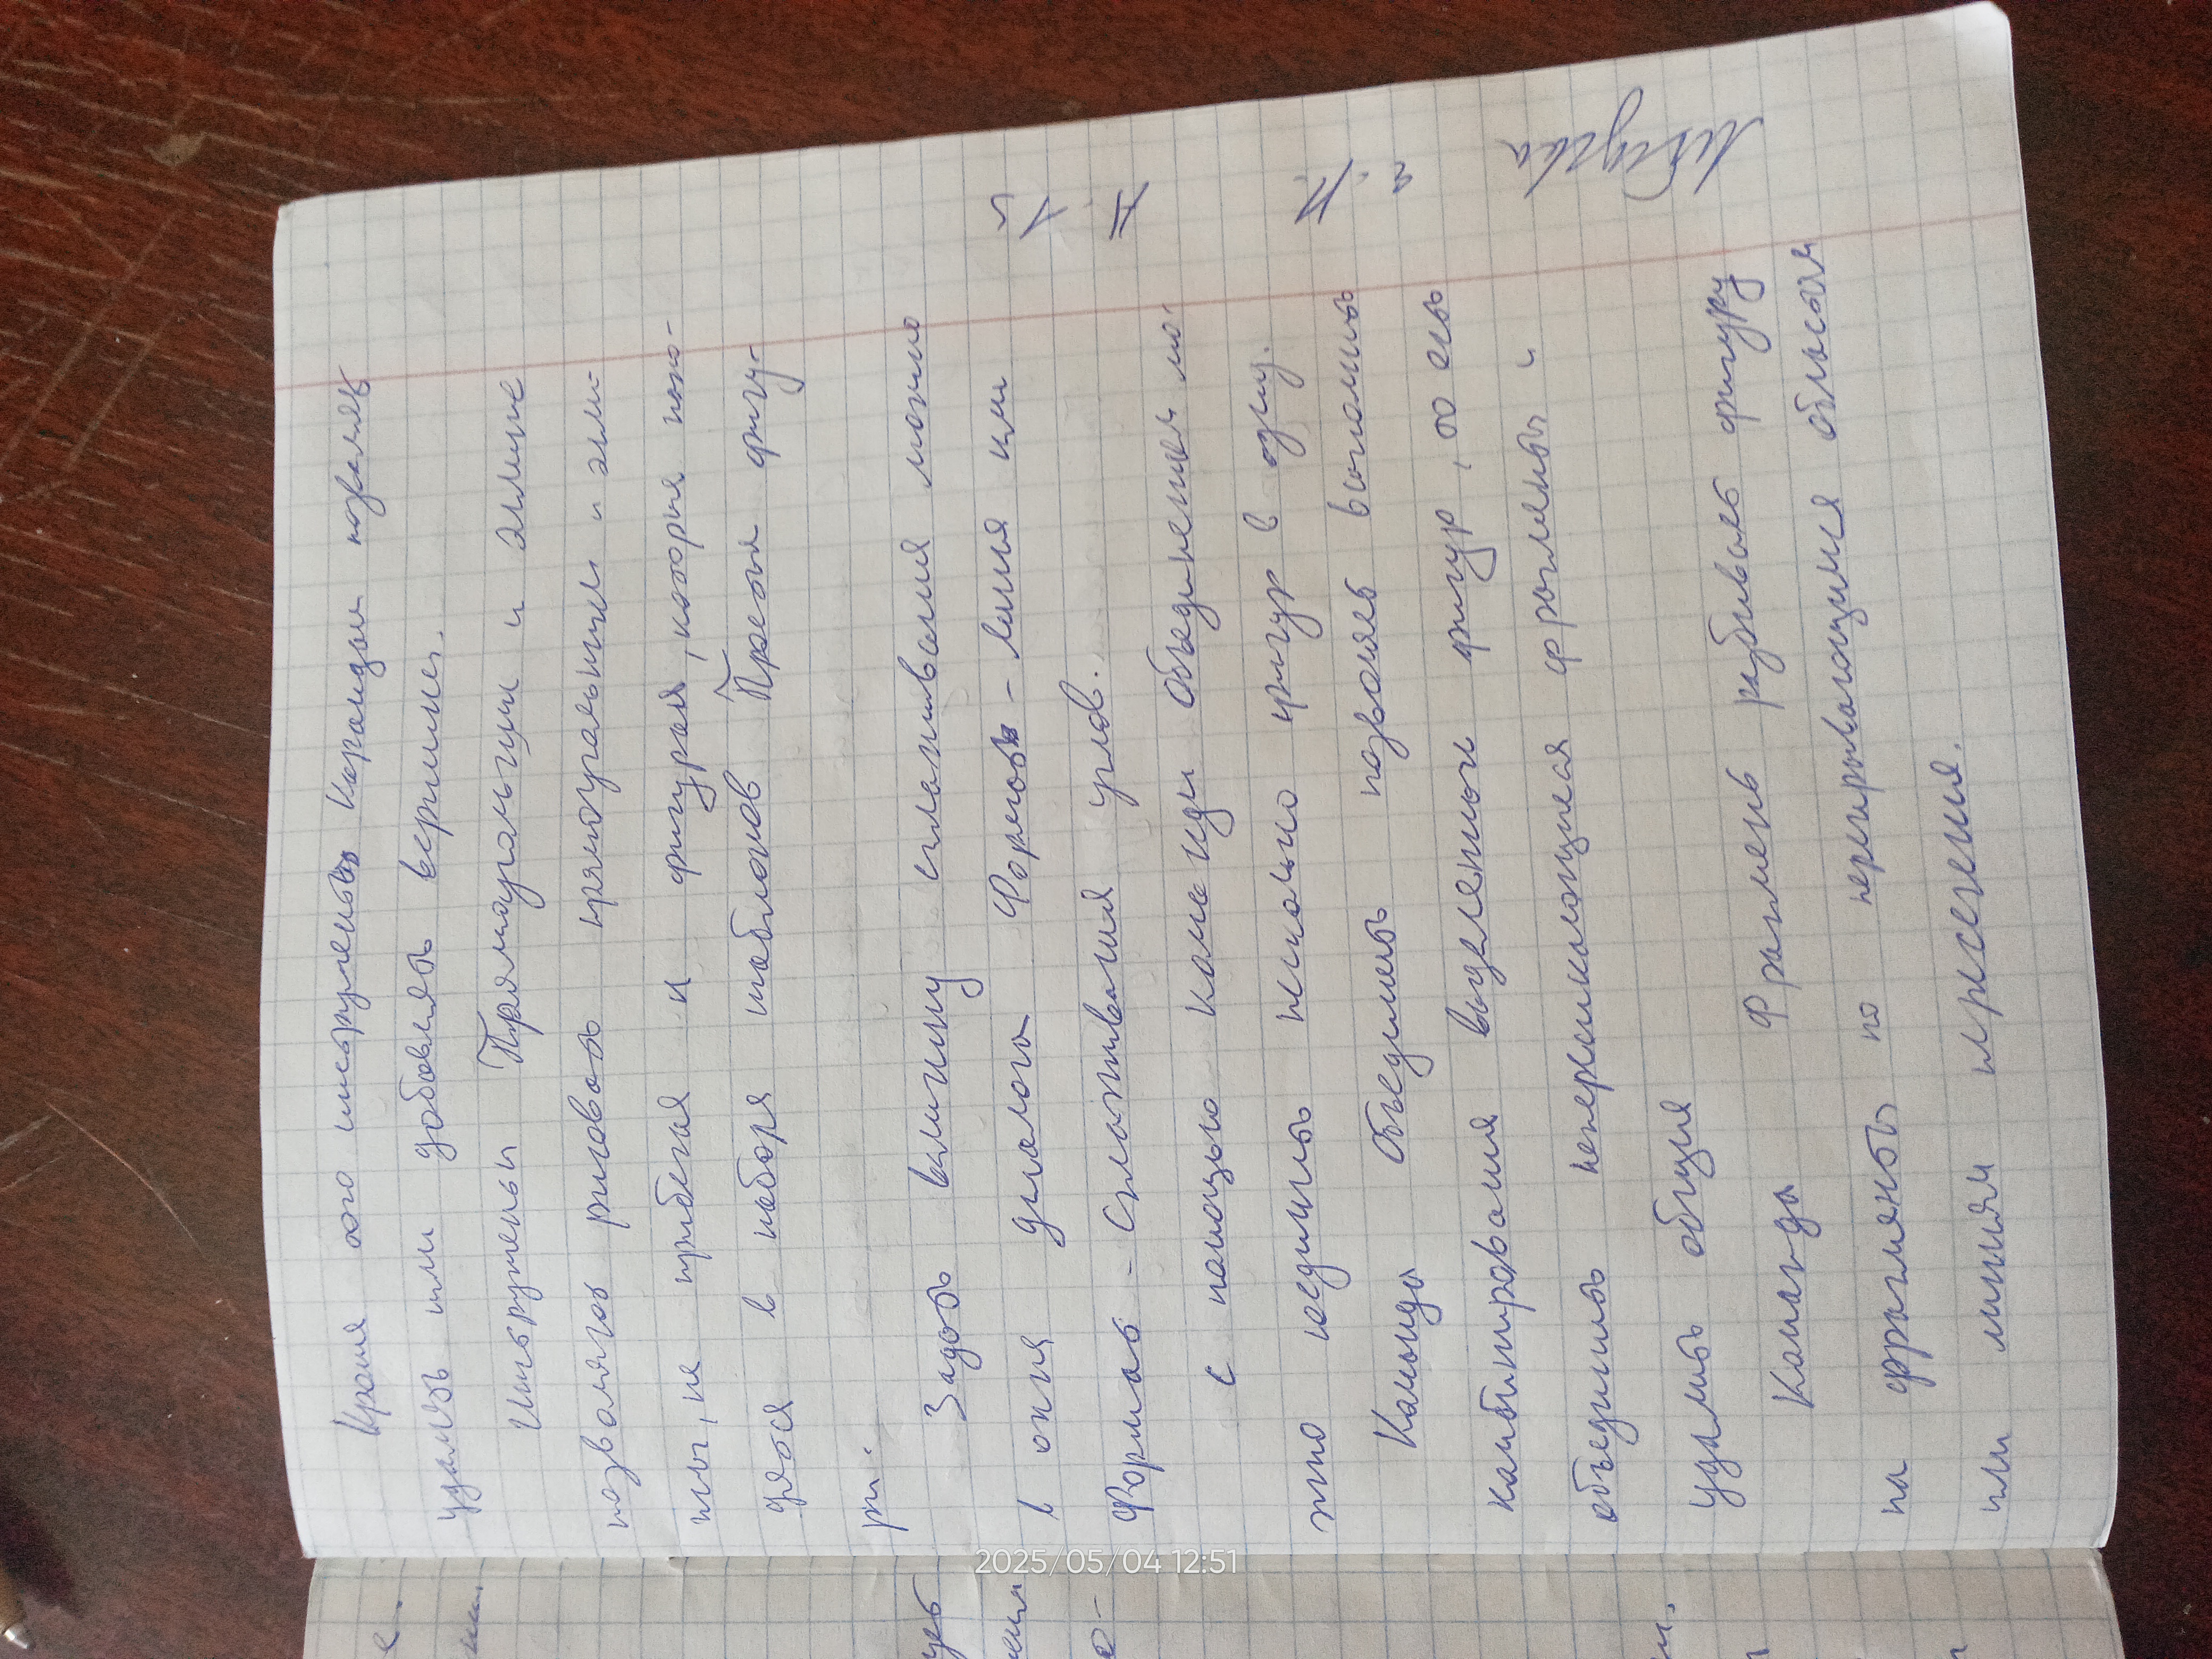 Кроме ого инструмента Карандаш позваляе
удалять или добовлять вершине.
Инструменты Прямоугольгик и эллипс
позволяют рисовать прямоугольники и элип-
сы, не прибегая к фигурам, которые нахо-
дятся в наборя шаблонов Простыя фигу-
ры.
Задать величину сглаживания можно
в окня диалога Формат - линия или
Формат - Сглаживания углов.
с помощью команды Объединения мо-
жно соединить несколько фигур в одну.
Команда Объединить позволяеб выполнить
камбинирования выделенных фигур, то есь
объединить неперсикающиеся фрагменты и
удалить общия
Команда Фрагмень разбиваеб фигуру
на фрагмянты по перекрывающимся областям
или линиям пресечения.
2025/05/04 12:51